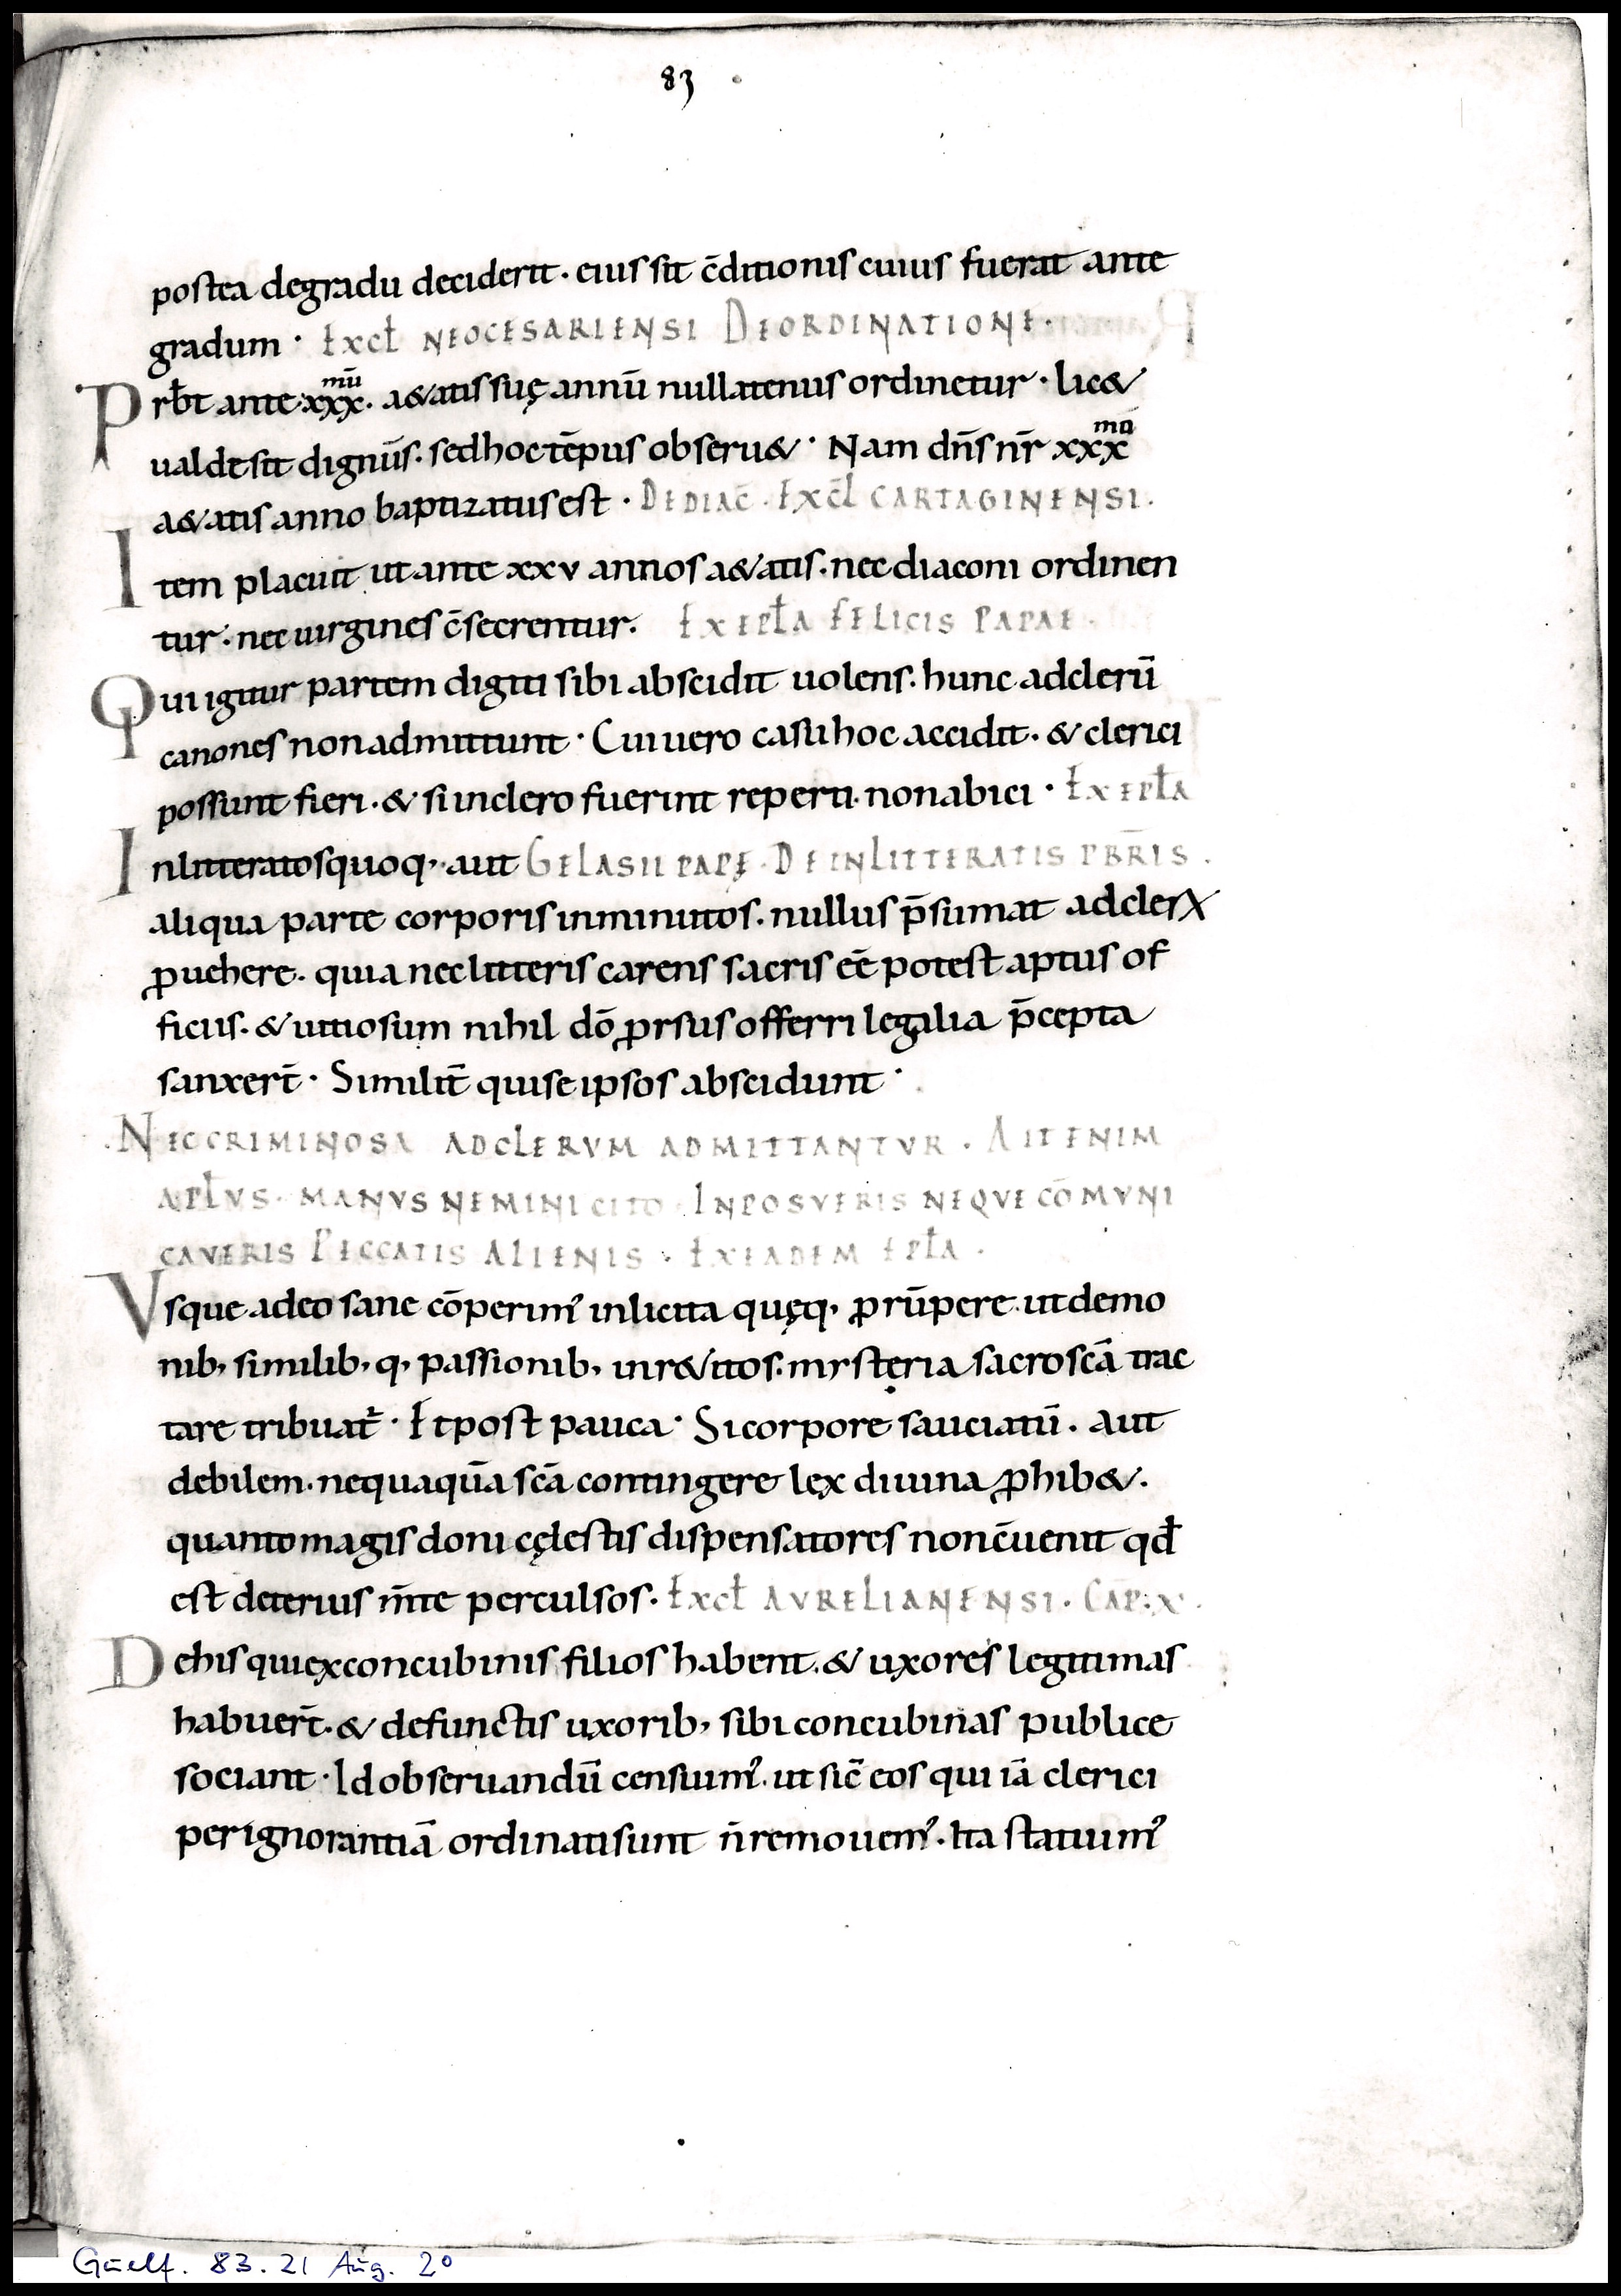 83
postea degradu deciderit · eius sit c̄ditionis cuius fuerat ante
gradum · Excł NEOCESARIENSI DEORDINATIONE ·
Prƀt ante xxx mū · a&atis suę annū nullatenus ordinetur · lic&
ualde sit dignūs · sed hoc tēpus obseru& · Nam dn̄s nr̄ xxx mo
a&atis anno baptizatus est · DEDIAC̄ · EXCL̄ CARTAGINENSI ·
Item placuit ut ante xxv annos a&atis · nec diaconi ordinen
tur · nec uirgines c̄secrentur · EX EPŁA FELICIS PAPAE ·
Qui igitur partem digiti sibi abscidit uolens · hunc adclerū
canones non admittunt · Cui uero casu hoc accidit · & clerici
possunt fieri · & si inclero fuerint reperti · non abici · EX EPŁA
Inlitteratos quoq, · aut GELASII PAPĘ · DE INLITTERATIS PB̄RIS ·
aliqua parte corporis inminutos · nullus p̄sumat adclerꝝ
ꝓuehere · quia nec litteris carens sacris eē potest aptus of
ficiis · & uitiosum nihil dō ꝓrsus offerri legalia p̄cepta
sanxert̄ · Similit̄ qui se ipsos abscidunt ·
NEC CRIMINOSA ADCLERVM ADMITTANTVR · AIT ENIM
APŁVS · MANVS NEMINI CITO INPOSVERIS NEQVE CŌMVNI
CAVERIS PECCATIS ALIENIS · EX EADEM EPŁA ·
Vsque adeo sane cōperim᾽ inlicita quęq, ꝓrūpere · ut demo
nib, similib, q, passionib, inr&itos · mysteria sacroscā trac
tare tribuat᾽ · Et post pauca · Si corpore sauciatū · aut
debilem · nequaquā scā contingere lex diuina ꝓhib& ·
quanto magis doni cęlestis dispensatores nonc̄uenit qđ
est deterius m̄te perculsos · EXCŁ AVRELIANENSI · CAP̄ · X ·
Dehis qui ex concubinis filios habent · & uxores legitimas
habuert̄ · & defunctis uxorib, sibi concubinas publice
sociant · Id obseruandū censuim᾽ · ut sic̄ eos qui iā clerici
per ignorantiā ordinati sunt n̄ remouem᾽ · Ita statuim᾽
Guelf. 83.21 Aug. 2°